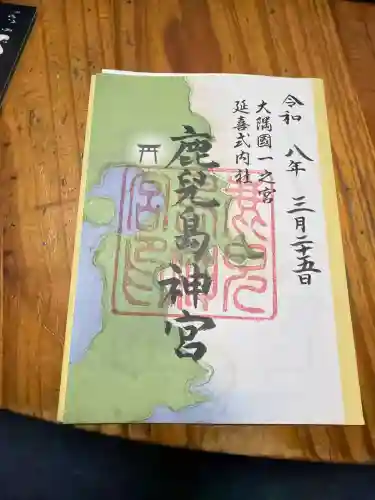 令和 八年 三月二十五日
大隅國一之宮
延喜式内社
鹿兒島神宮